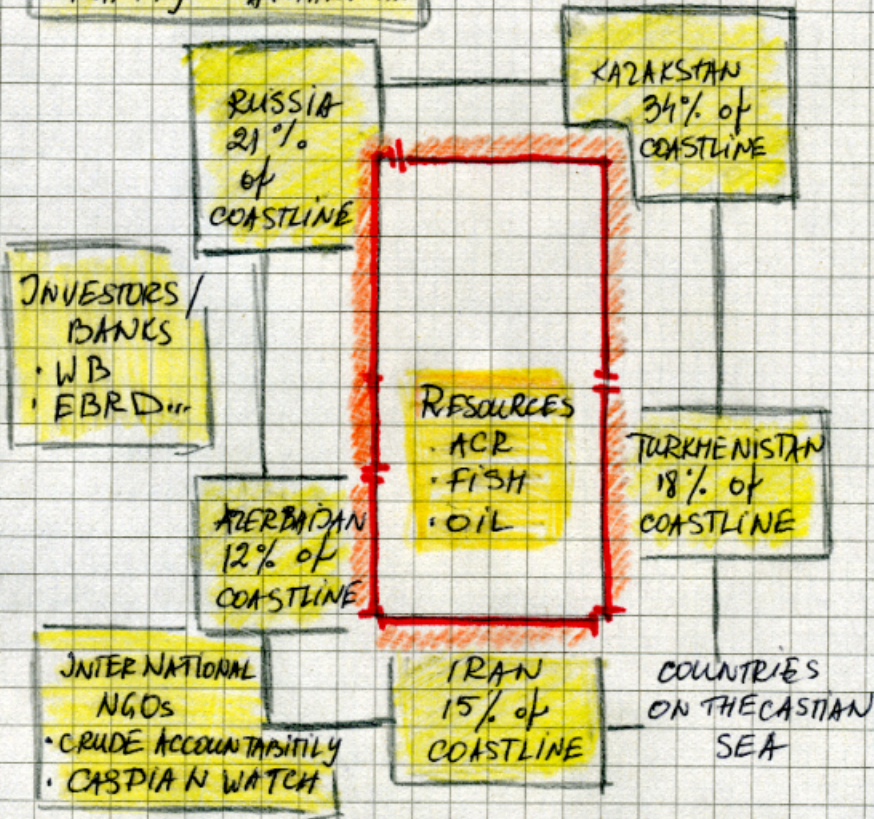 RUSSIA
21%
of
COASTLINE
KAZAKSTAN
34% of
COASTLINE
INVESTORS/
BANKS
· WB
· EBRD...
RESOURCES
· ACR
· FISH
· OIL
TURKHENISTAN
18% of
COASTLINE
AZERBAIJAN
12% of
COASTLINE
INTERNATIONAL
NGOs
· CRUDE ACCOUNTABITILY
· CASPIAN WATCH
IRAN
15% of
COASTLINE
COUNTRIES
ON THE CASTIAN
SEA